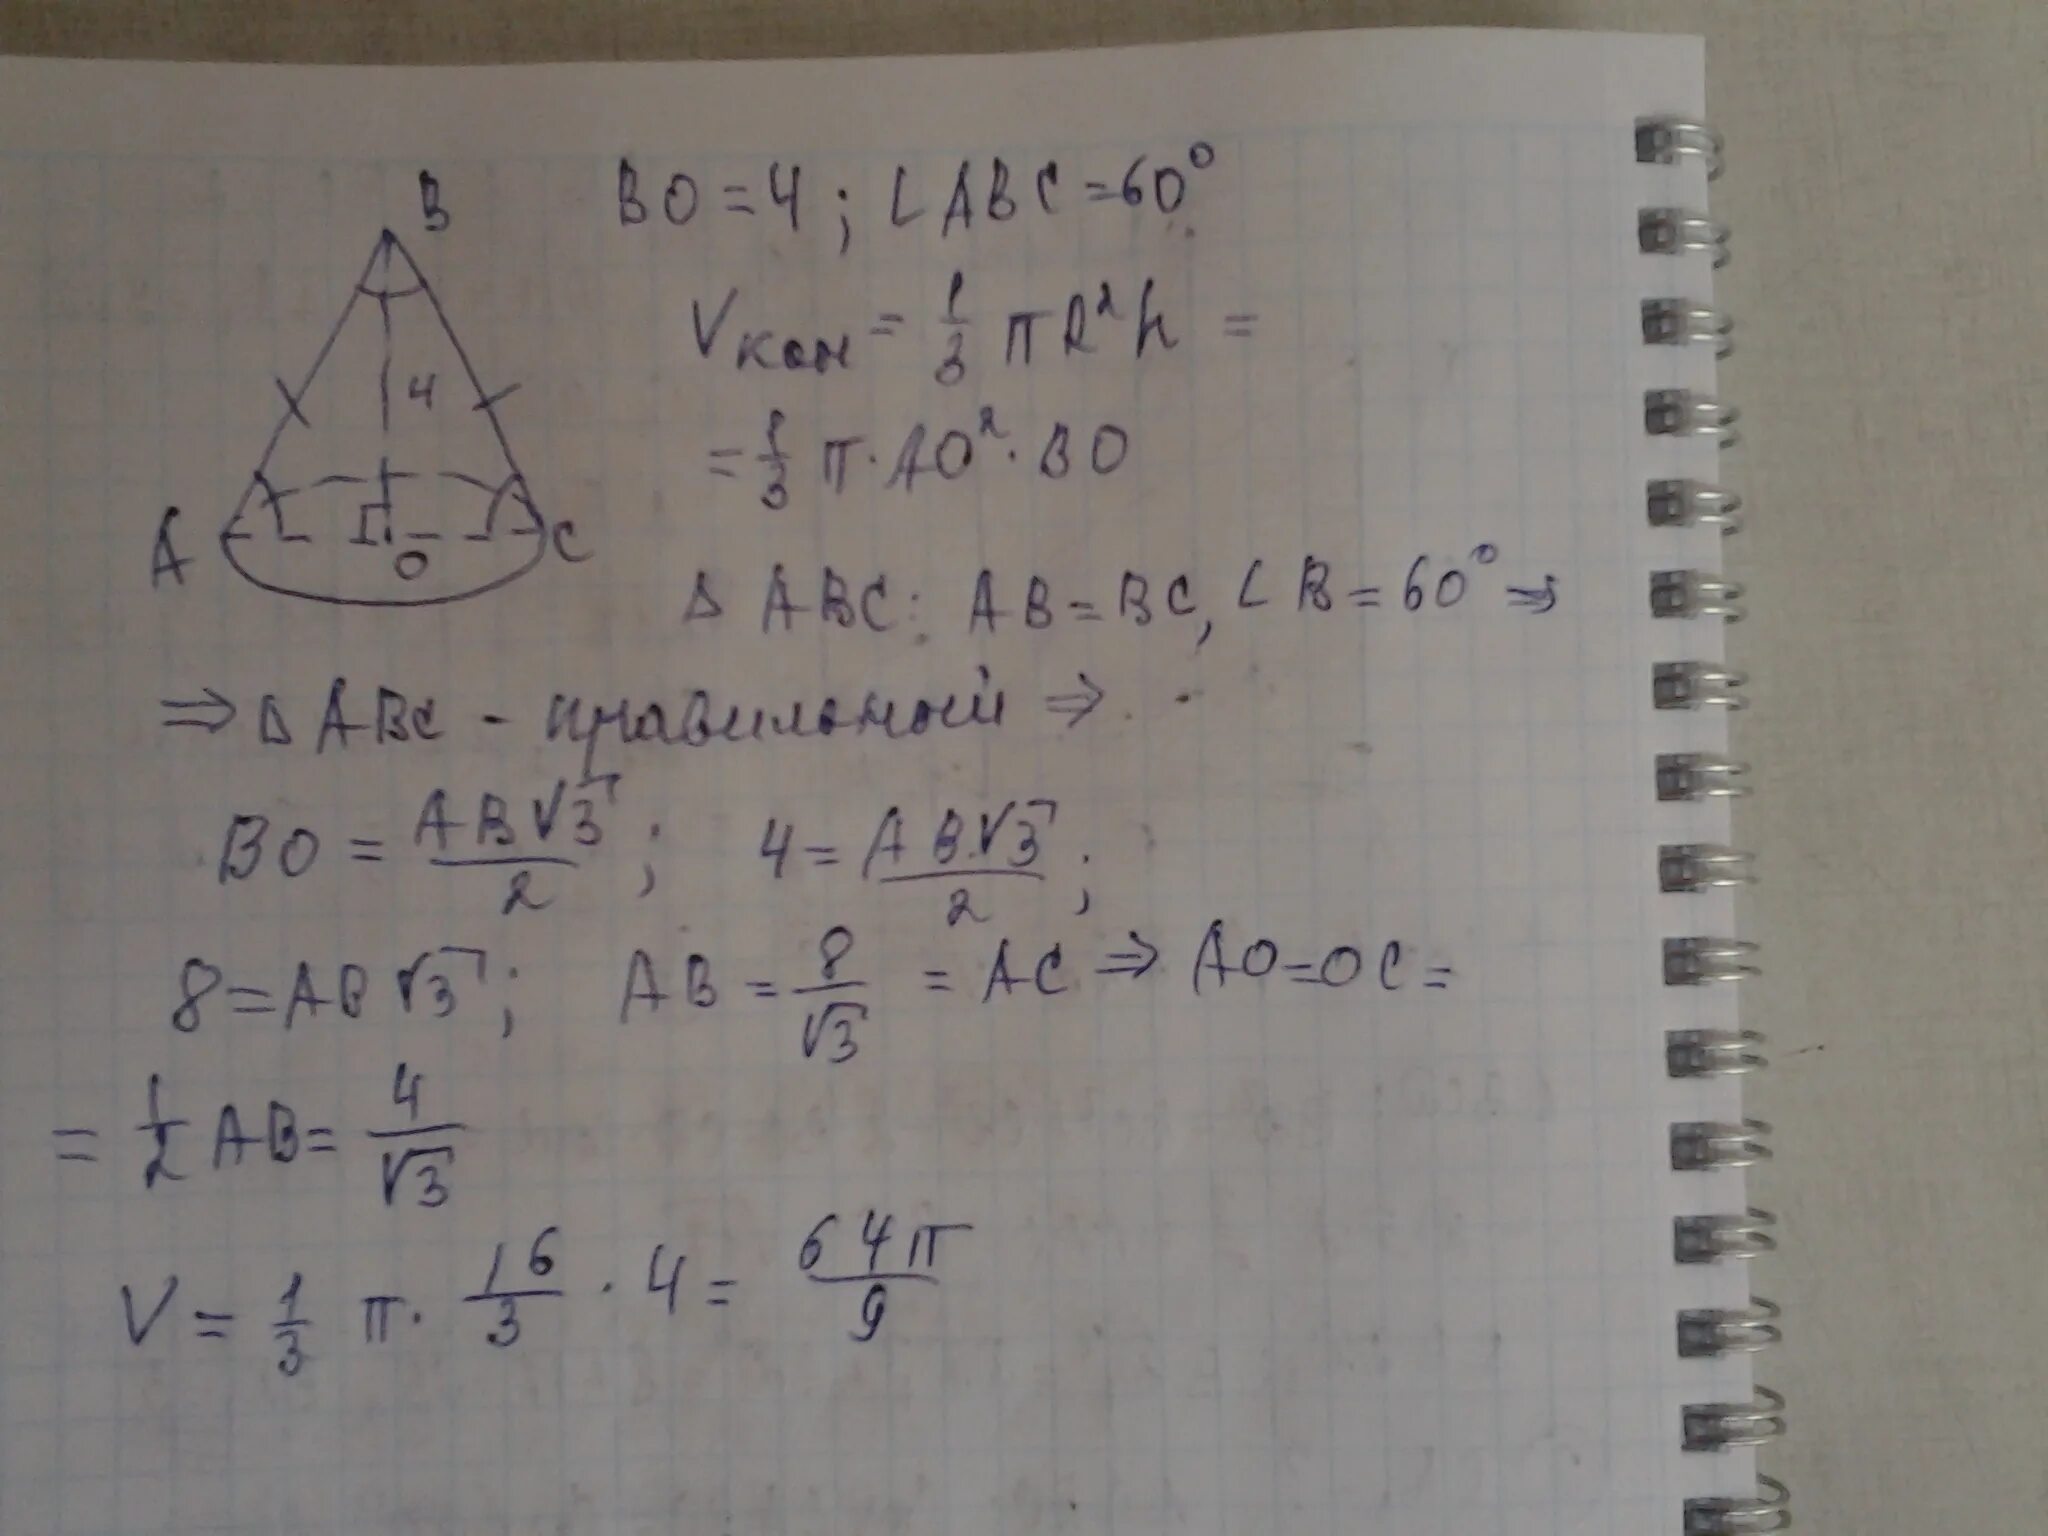 B
4
A
O
C
BO = 4 ; ∠ABC = 60°
Vкон = 1/3 πR²h =
= 1/3 π · AO² · BO
△ ABC : AB = BC, ∠B = 60° ⇒
⇒ △ ABC - правильный ⇒
BO = AB√3/2 ; 4 = AB·√3/2 ;
8 = AB √3 ; AB = 8/√3 = AC ⇒ AO = OC =
= 1/2 AB = 4/√3
V = 1/3 π · 16/3 · 4 = 64π/9